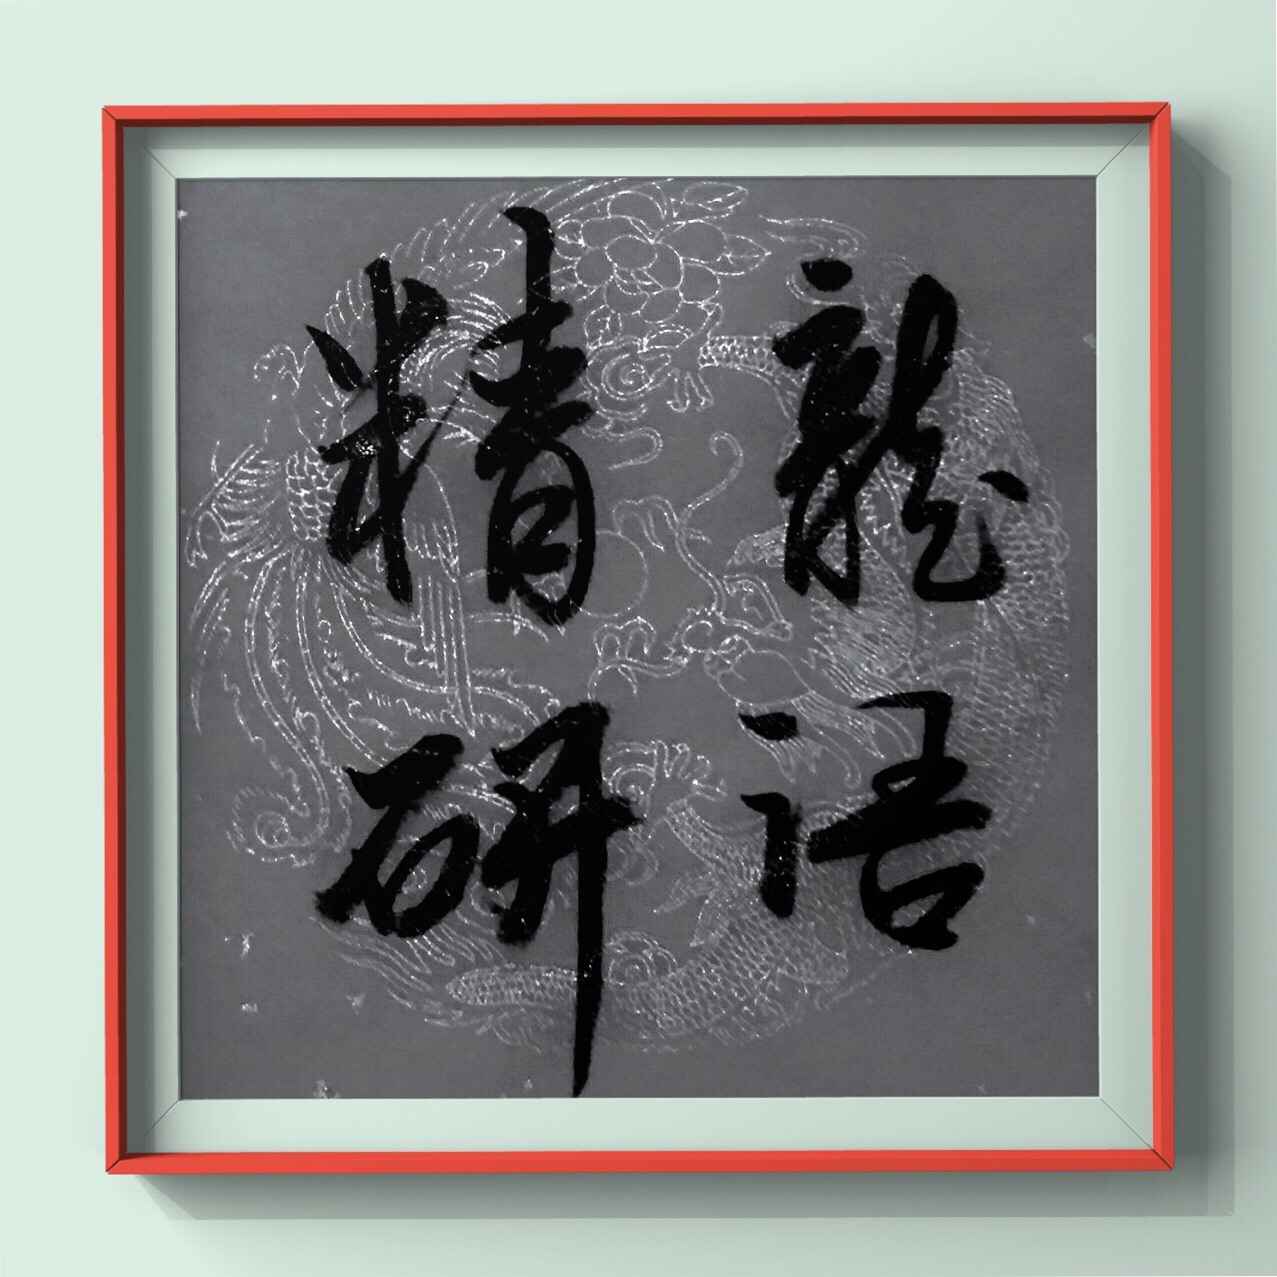 龍语
精研